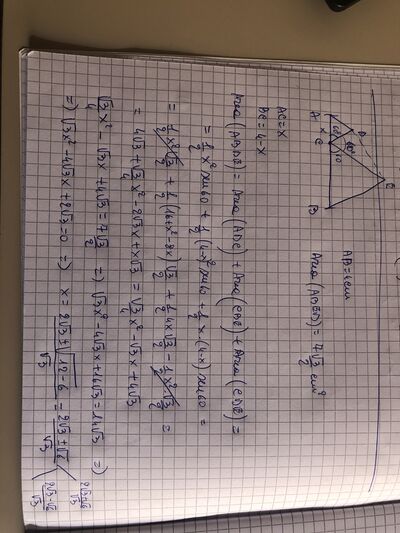 D
E
60
60
60
A x C
B
AB=4cm
Area(ABED)= 7√3/2 cm²
AC=x
BC=4-x
Area(ABED)= Area(ADC)+Area(CBE)+Area(CDE)=
= 1/2 x² sen60 + 1/2 (4-x)² sen60 + 1/2 x(4-x) sen60 =
= 1/2 x² √3/2 + 1/2 (16+x²-8x) √3/2 + 1/2 4x √3/2 - 1/2 x² √3/2 =
= 4√3 + √3/4 x² - 2√3x + x√3 = √3/4 x² - √3x + 4√3
√3/4 x² - √3x + 4√3 = 7√3/2 => √3x² - 4√3x + 16√3 = 14√3 =>
=> √3x² - 4√3x + 2√3 = 0 => x = 2√3 ± √12-6 / √3 = 2√3 ± √6 / √3
2√3+√6 / √3
2√3-√6 / √3